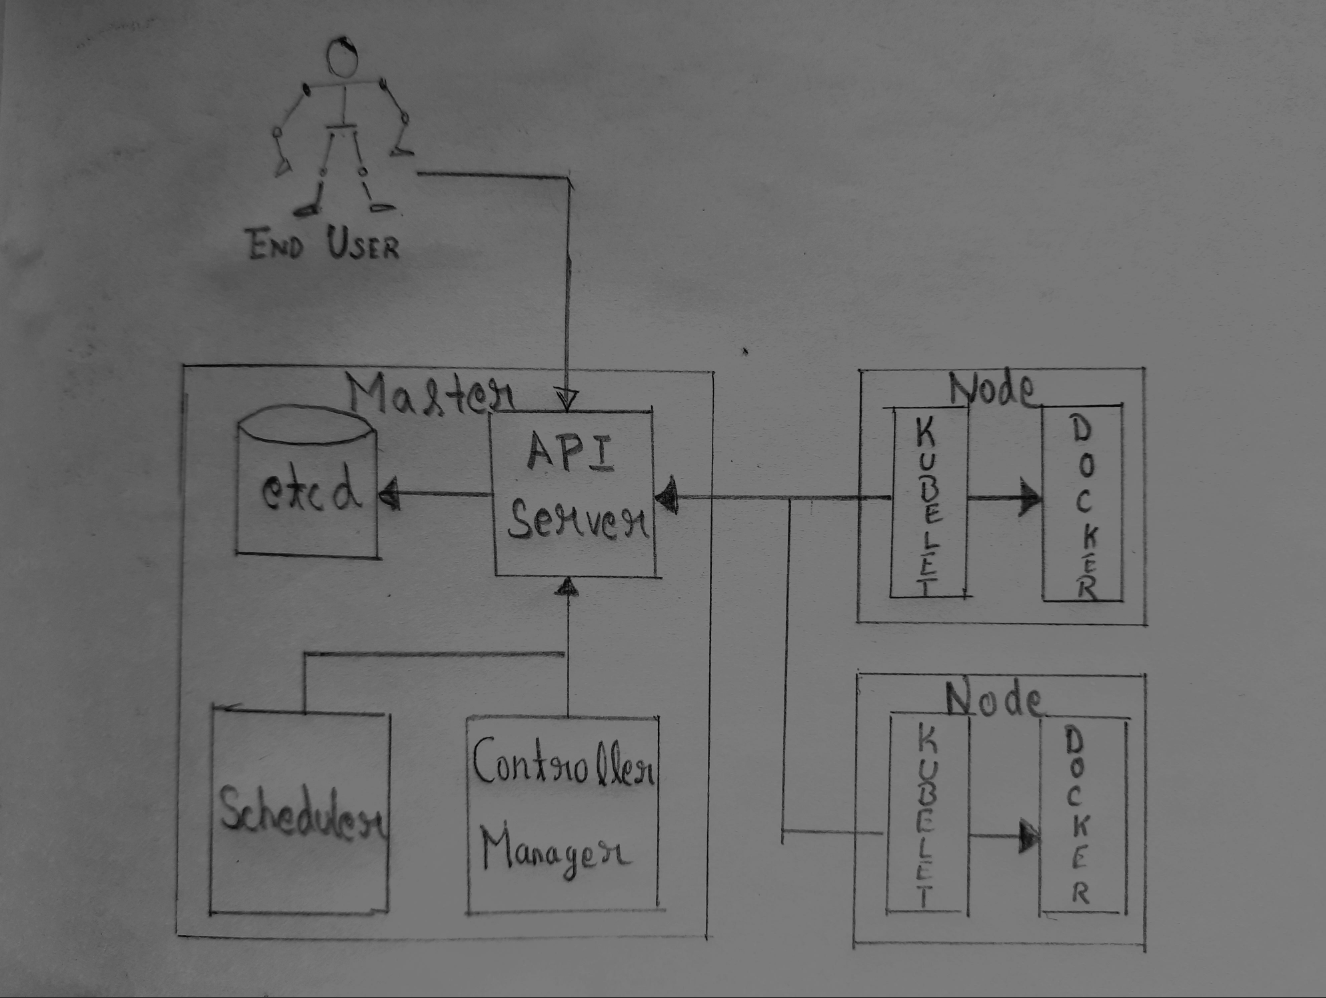 END USER
Master
etcd
API
Server
Scheduler
Controller
Manager
Node
KUBELET
DOCKER
Node
KUBELET
DOCKER